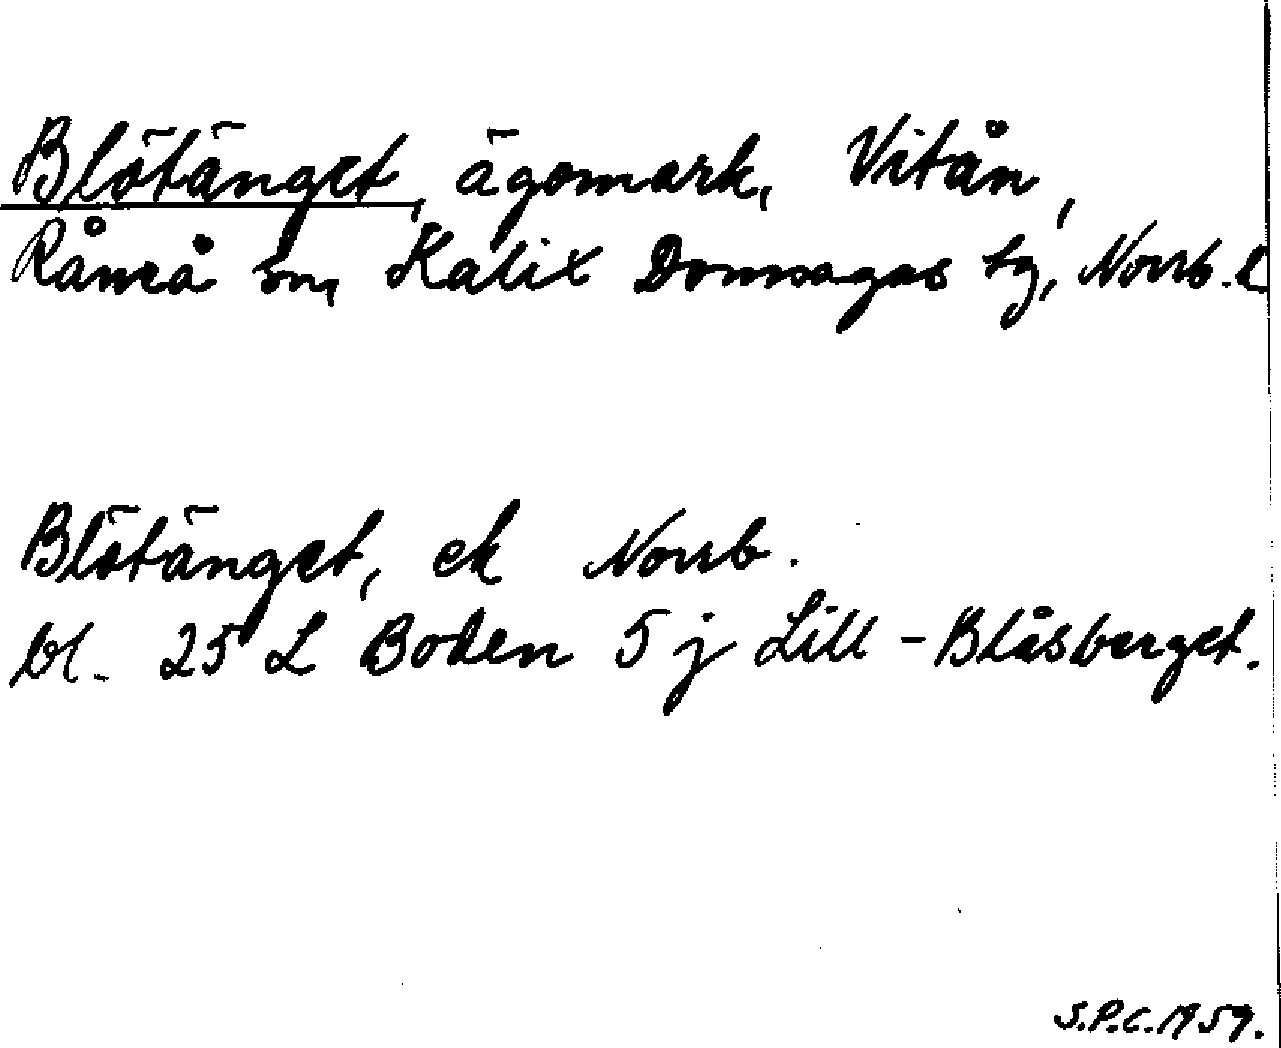 Blötänget, ägomark, Vitån,
Råneå sn, Kalix Domsagas tg, Norrb. l
Blötänget, ek Norrb.
bl. 25 L Boden 5 j Lill-Blåsberget.
S.P.C. 1959.